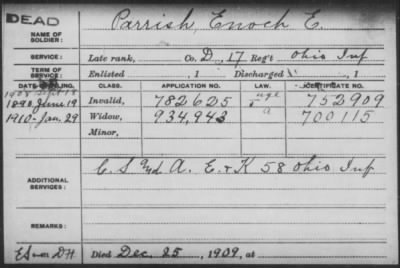 DEAD
NAME OF SOLDIER: Parrish, Enoch E.
SERVICE: Late rank, Co. D, 17 Reg't Ohio Inf
TERM OF SERVICE: Enlisted , 1 Discharged , 1
DATE OF FILING. CLASS. APPLICATION NO. CERTIFICATE NO.
1908 Sept 18
1890 June 19 Invalid, 782625 752909
1910-Jan. 29 Widow, 934,943 700115
Minor,
ADDITIONAL SERVICES: C. S. A. E. & K 58 Ohio Inf
REMARKS:
Died Dec. 25, 1909, at